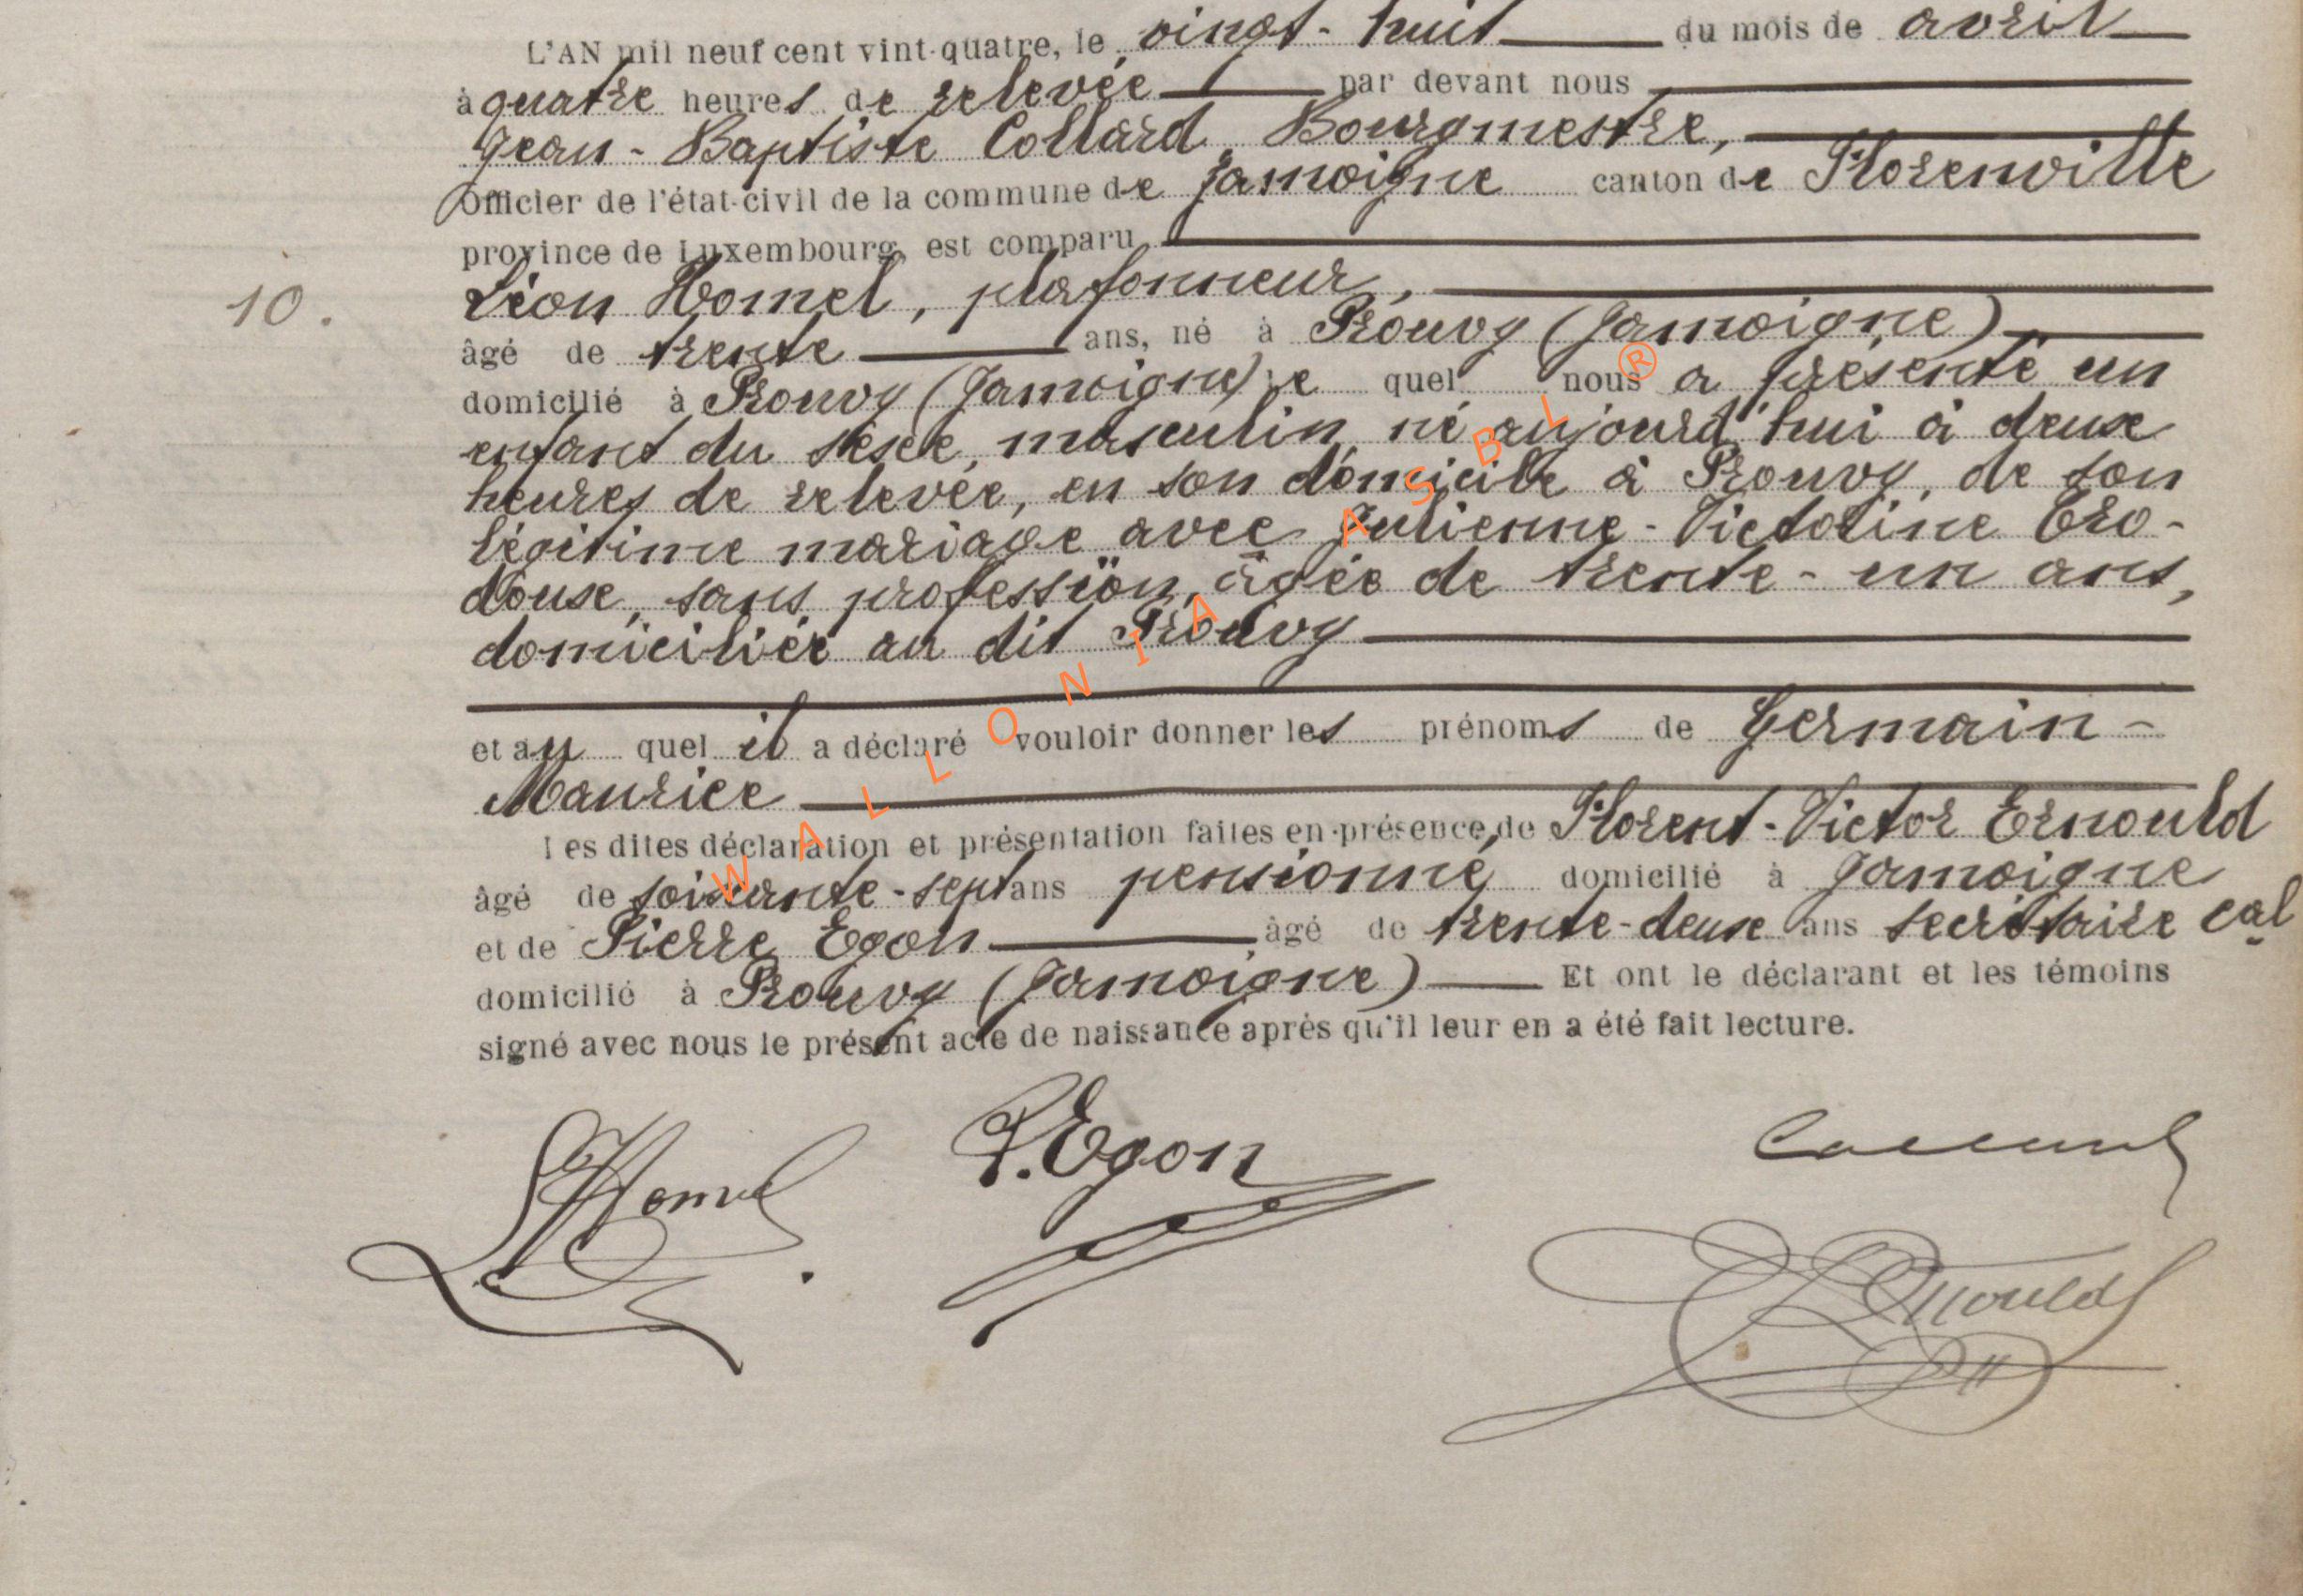 L'AN mil neuf cent vint-quatre, le vingt-huit du mois de avril
à quatre heures de relevée par devant nous
Jean-Baptiste Collard, Bourgmestre,
Officier de l'état-civil de la commune de Jamoigne canton de Florenville
province de Luxembourg, est comparu
Léon Homel, plafonneur,
10.
âgé de trente ans, né à Prouvy (Jamoigne)
domicilié à Prouvy (Jamoigne) le quel nous a présenté un
enfant du sexe, masculin, né aujourd'hui à deux
heures de relevée, en son domicile à Prouvy, de son
légitime mariage avec Julienne-Victorine Ero-
douse, sans profession, âgée de trente-un ans,
domiciliée au dit Prouvy
et au quel il a déclaré vouloir donner les prénoms de Germain-
Maurice
Les dites déclaration et présentation faites en présence de Florent-Victor Ernould
âgé de soixante-sept ans pensionné domicilié à Jamoigne
et de Pierre Egon âgé de trente-deux ans secrétaire cal
domicilié à Prouvy (Jamoigne) Et ont le déclarant et les témoins
signé avec nous le présent acte de naissance après qu'il leur en a été fait lecture.
L Homel
P. Egon
Collard
Ernould
WALLONIA ASBL ®